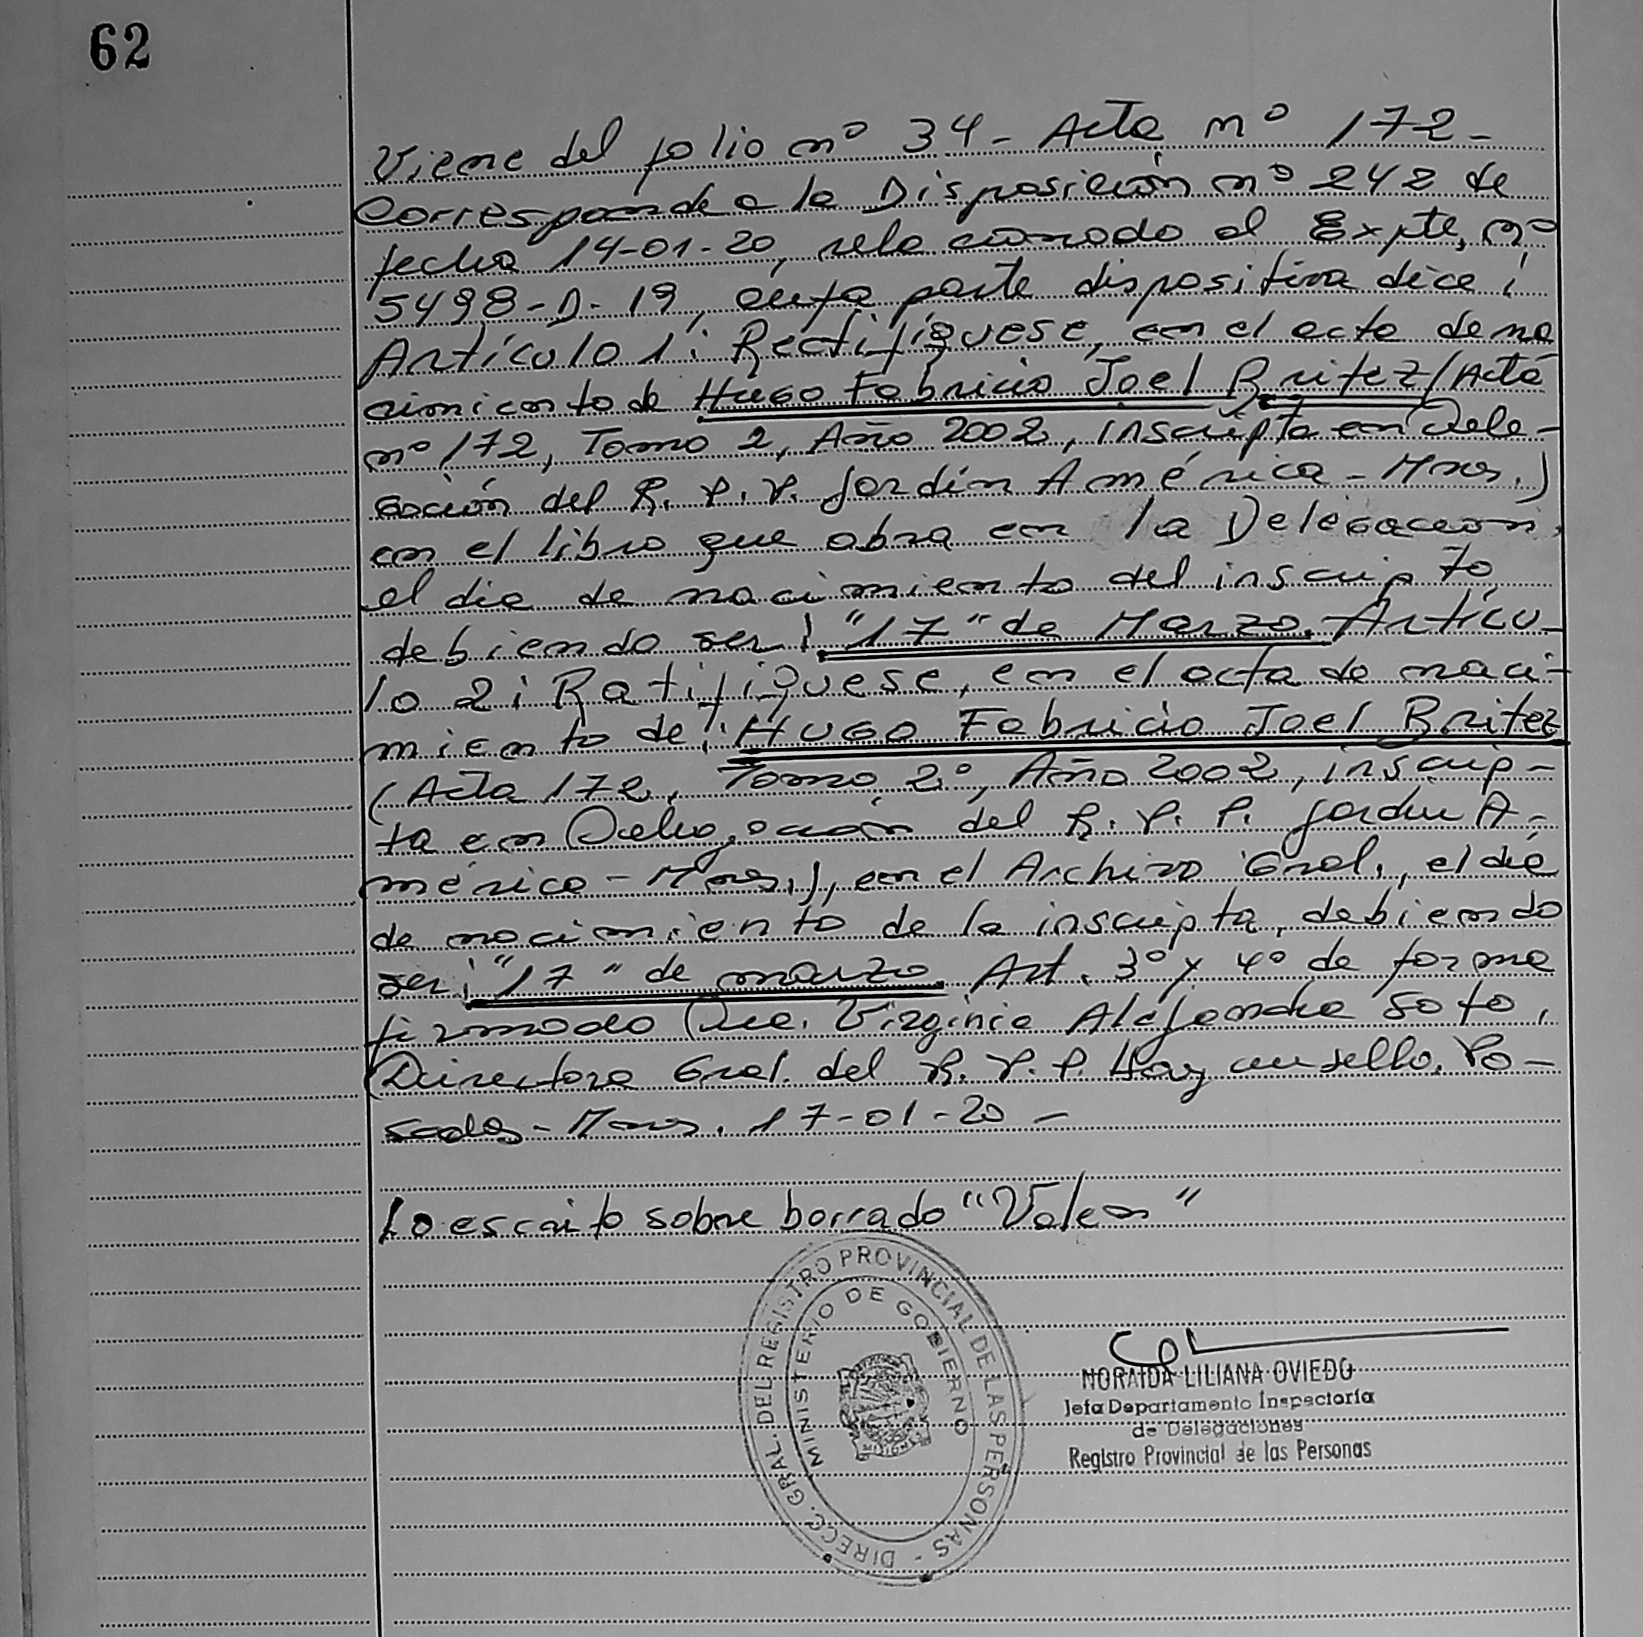 62
Viene del folio nº 34 - Acta nº 172 -
Corresponde a la Disposición nº 242 de
fecha 14-01-20, relacionado al Expte, nº
5498-D-19, cuya parte dispositiva dice:
Artículo 1: Rectifíquese, en el acta de na
cimiento de Hugo Fabricio Joel Britez (Acta
nº 172, Tomo 2, Año 2002, inscripta en Dele-
gación del R. P. P. Jardín América - Mnes.)
en el libro que obra en la Delegación,
el día de nacimiento del inscripto,
debiendo ser: "17" de Marzo. Artícu-
lo 2: Ratifíquese, en el acta de naci-
miento de: Hugo Fabricio Joel Britez
(Acta 172, Tomo 2º, Año 2002, inscrip-
ta en Delegación del R. P. P. Jardín A-
mérica - Mnes.), en el Archivo Gral., el día
de nacimiento de la inscripta, debiendo
ser: "17" de marzo. Art. 3º y 4º de forma
firmado Virginia Alejandra Soto,
Directora Gral. del R. P. P. Hay un sello. Po-
sadas - Mnes. 17-01-20 -
Lo escrito sobre borrado "Valen"
DIRECC. GRAL. DEL REGISTRO PROVINCIAL DE LAS PERSONAS -
MINISTERIO DE GOBIERNO
MISIONES
NORAIDA LILIANA OVIEDO
Jefa Departamento Inspectoría
de Delegaciones
Registro Provincial de las Personas